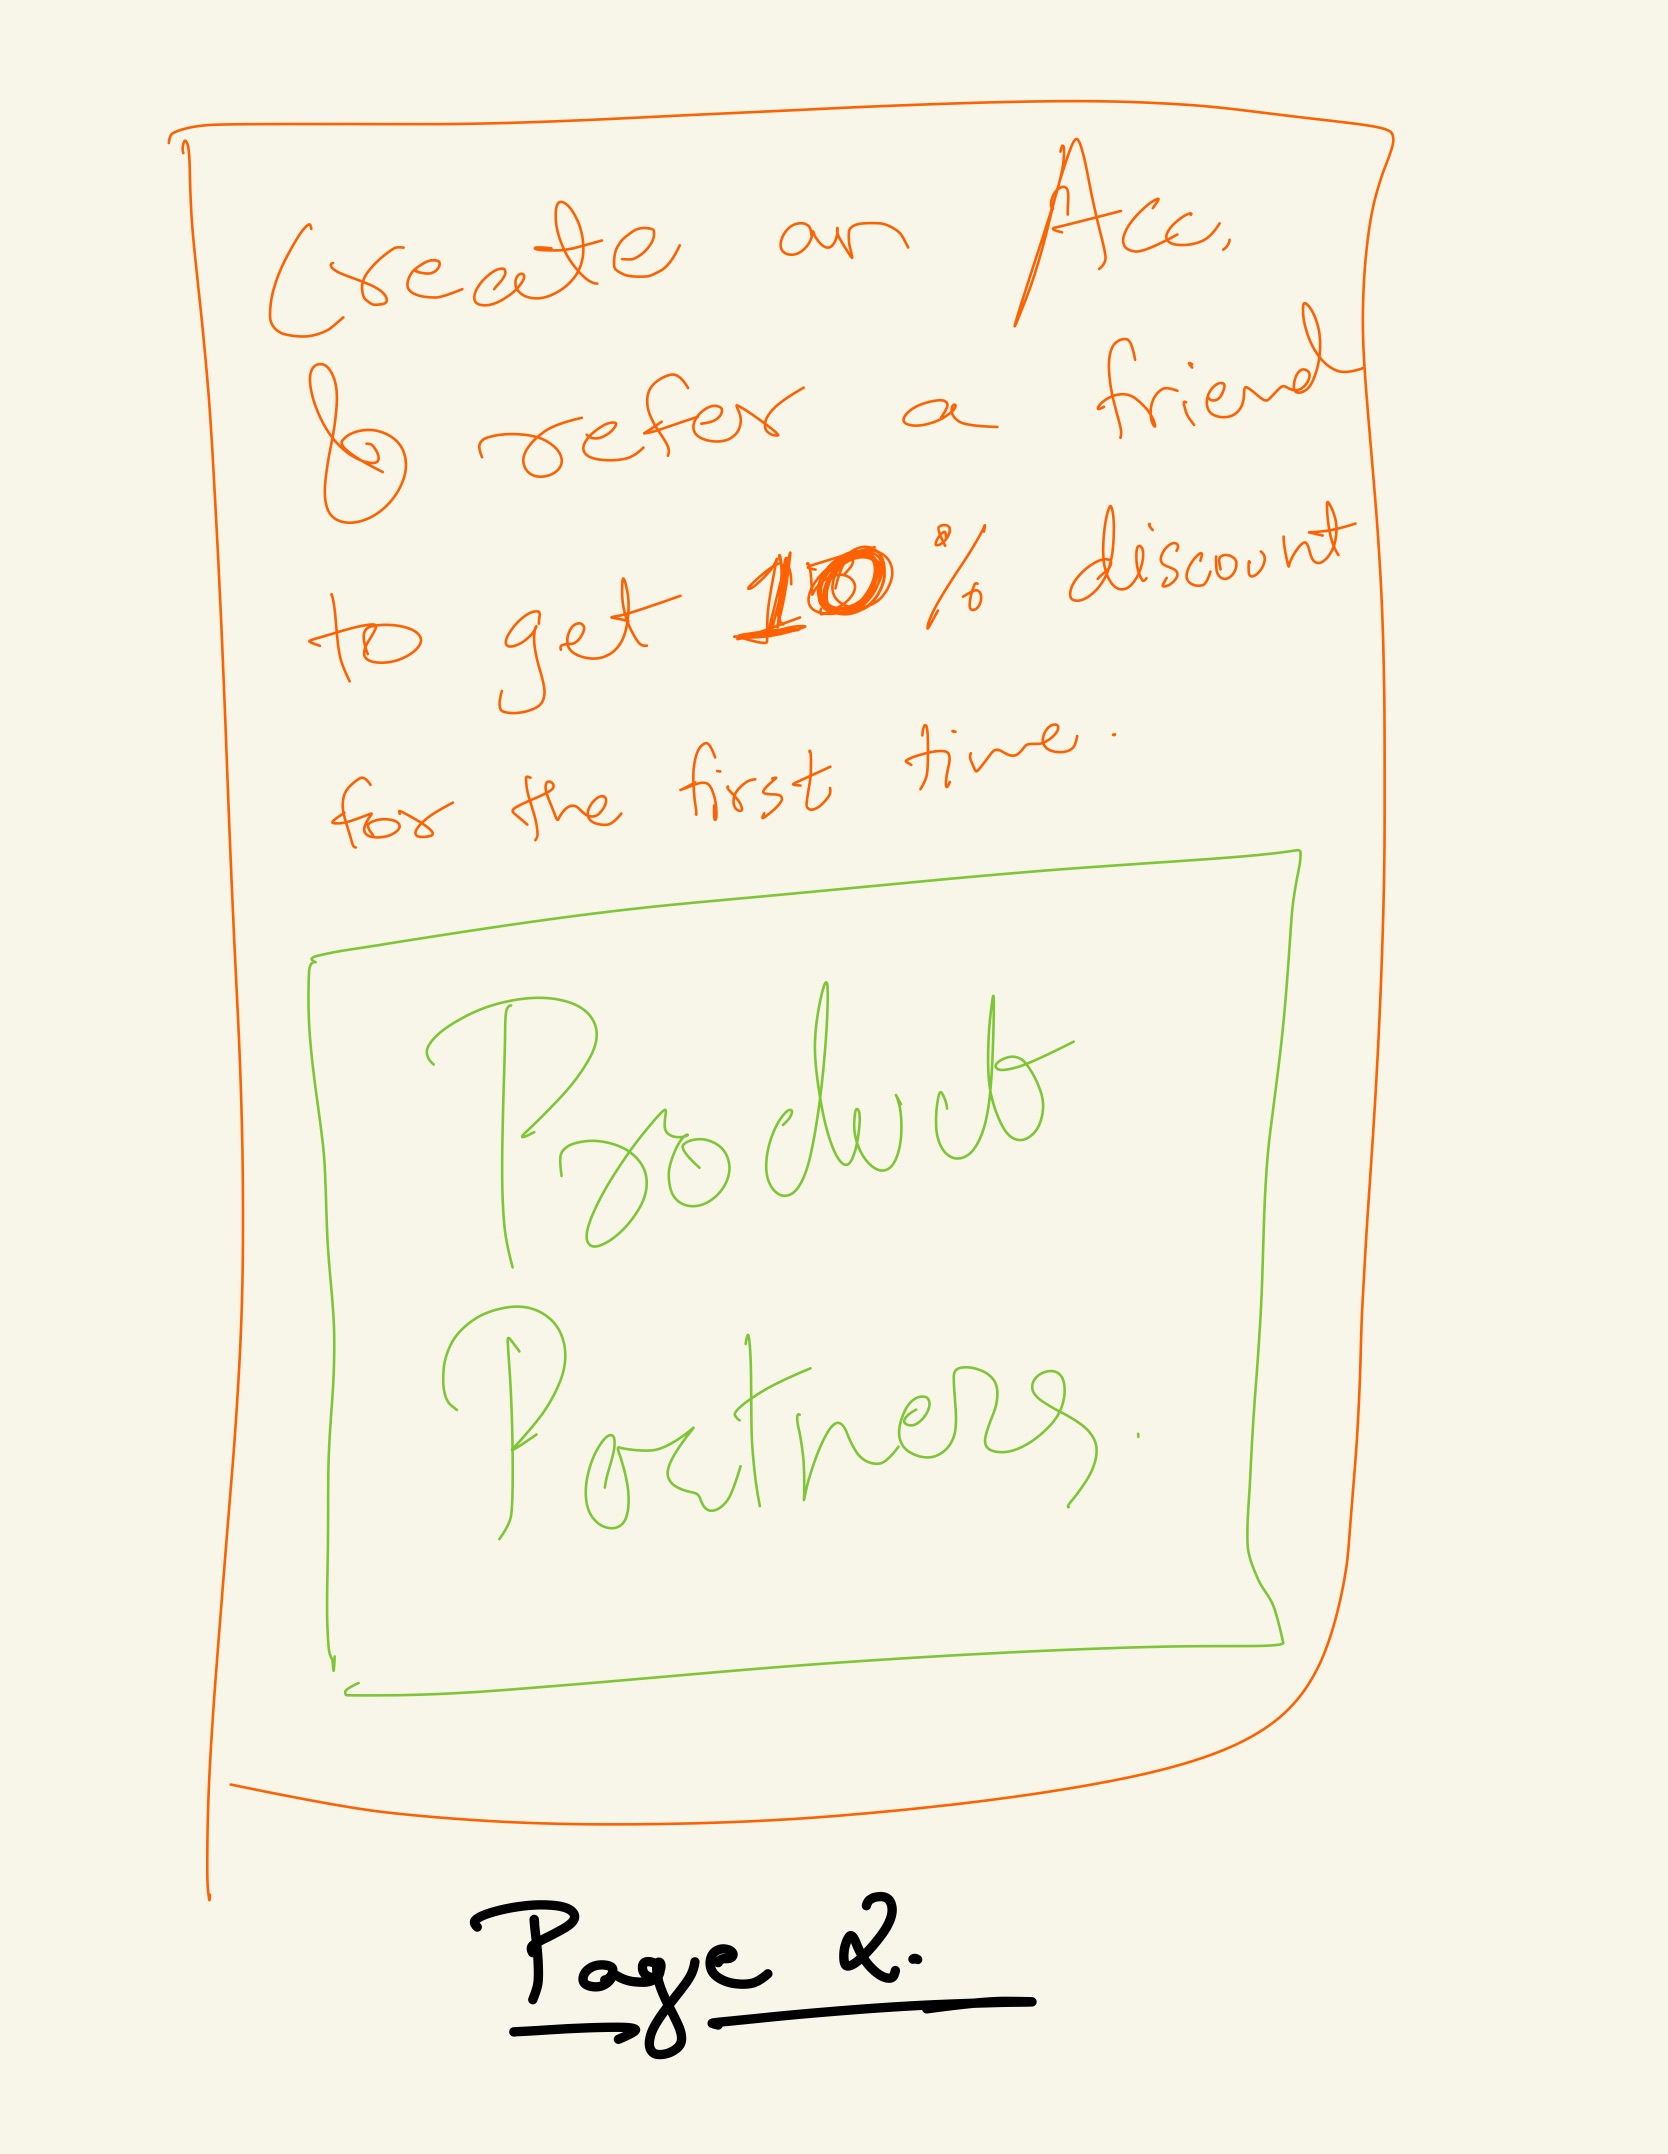 Create an Acc,
& refer a friend
to get 10% discount
for the first time.
Product
Partners.
Page 2.